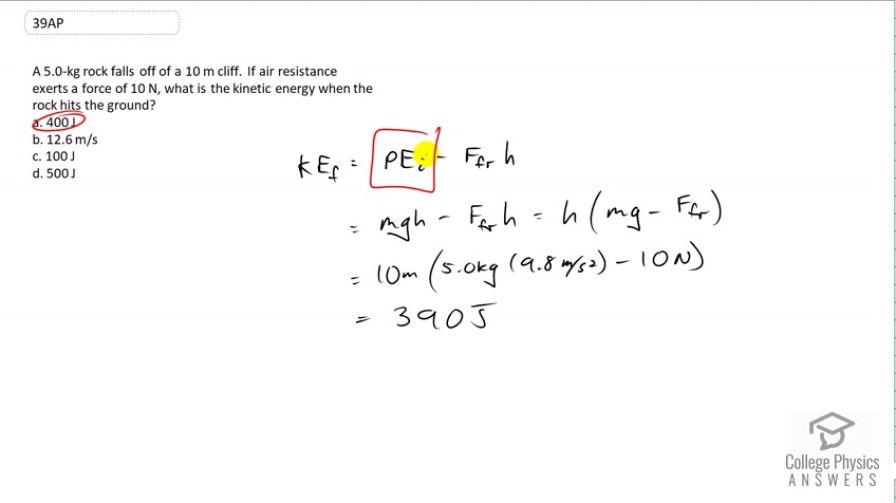 39AP
A 5.0-kg rock falls off of a 10 m cliff. If air resistance
exerts a force of 10 N, what is the kinetic energy when the
rock hits the ground?
a. 400 J
b. 12.6 m/s
c. 100 J
d. 500 J
KE_f = PE_i - F_fr h
= mgh - F_fr h = h (mg - F_fr)
= 10m (5.0kg (9.8 m/s²) - 10N)
= 390J
College Physics
ANSWERS